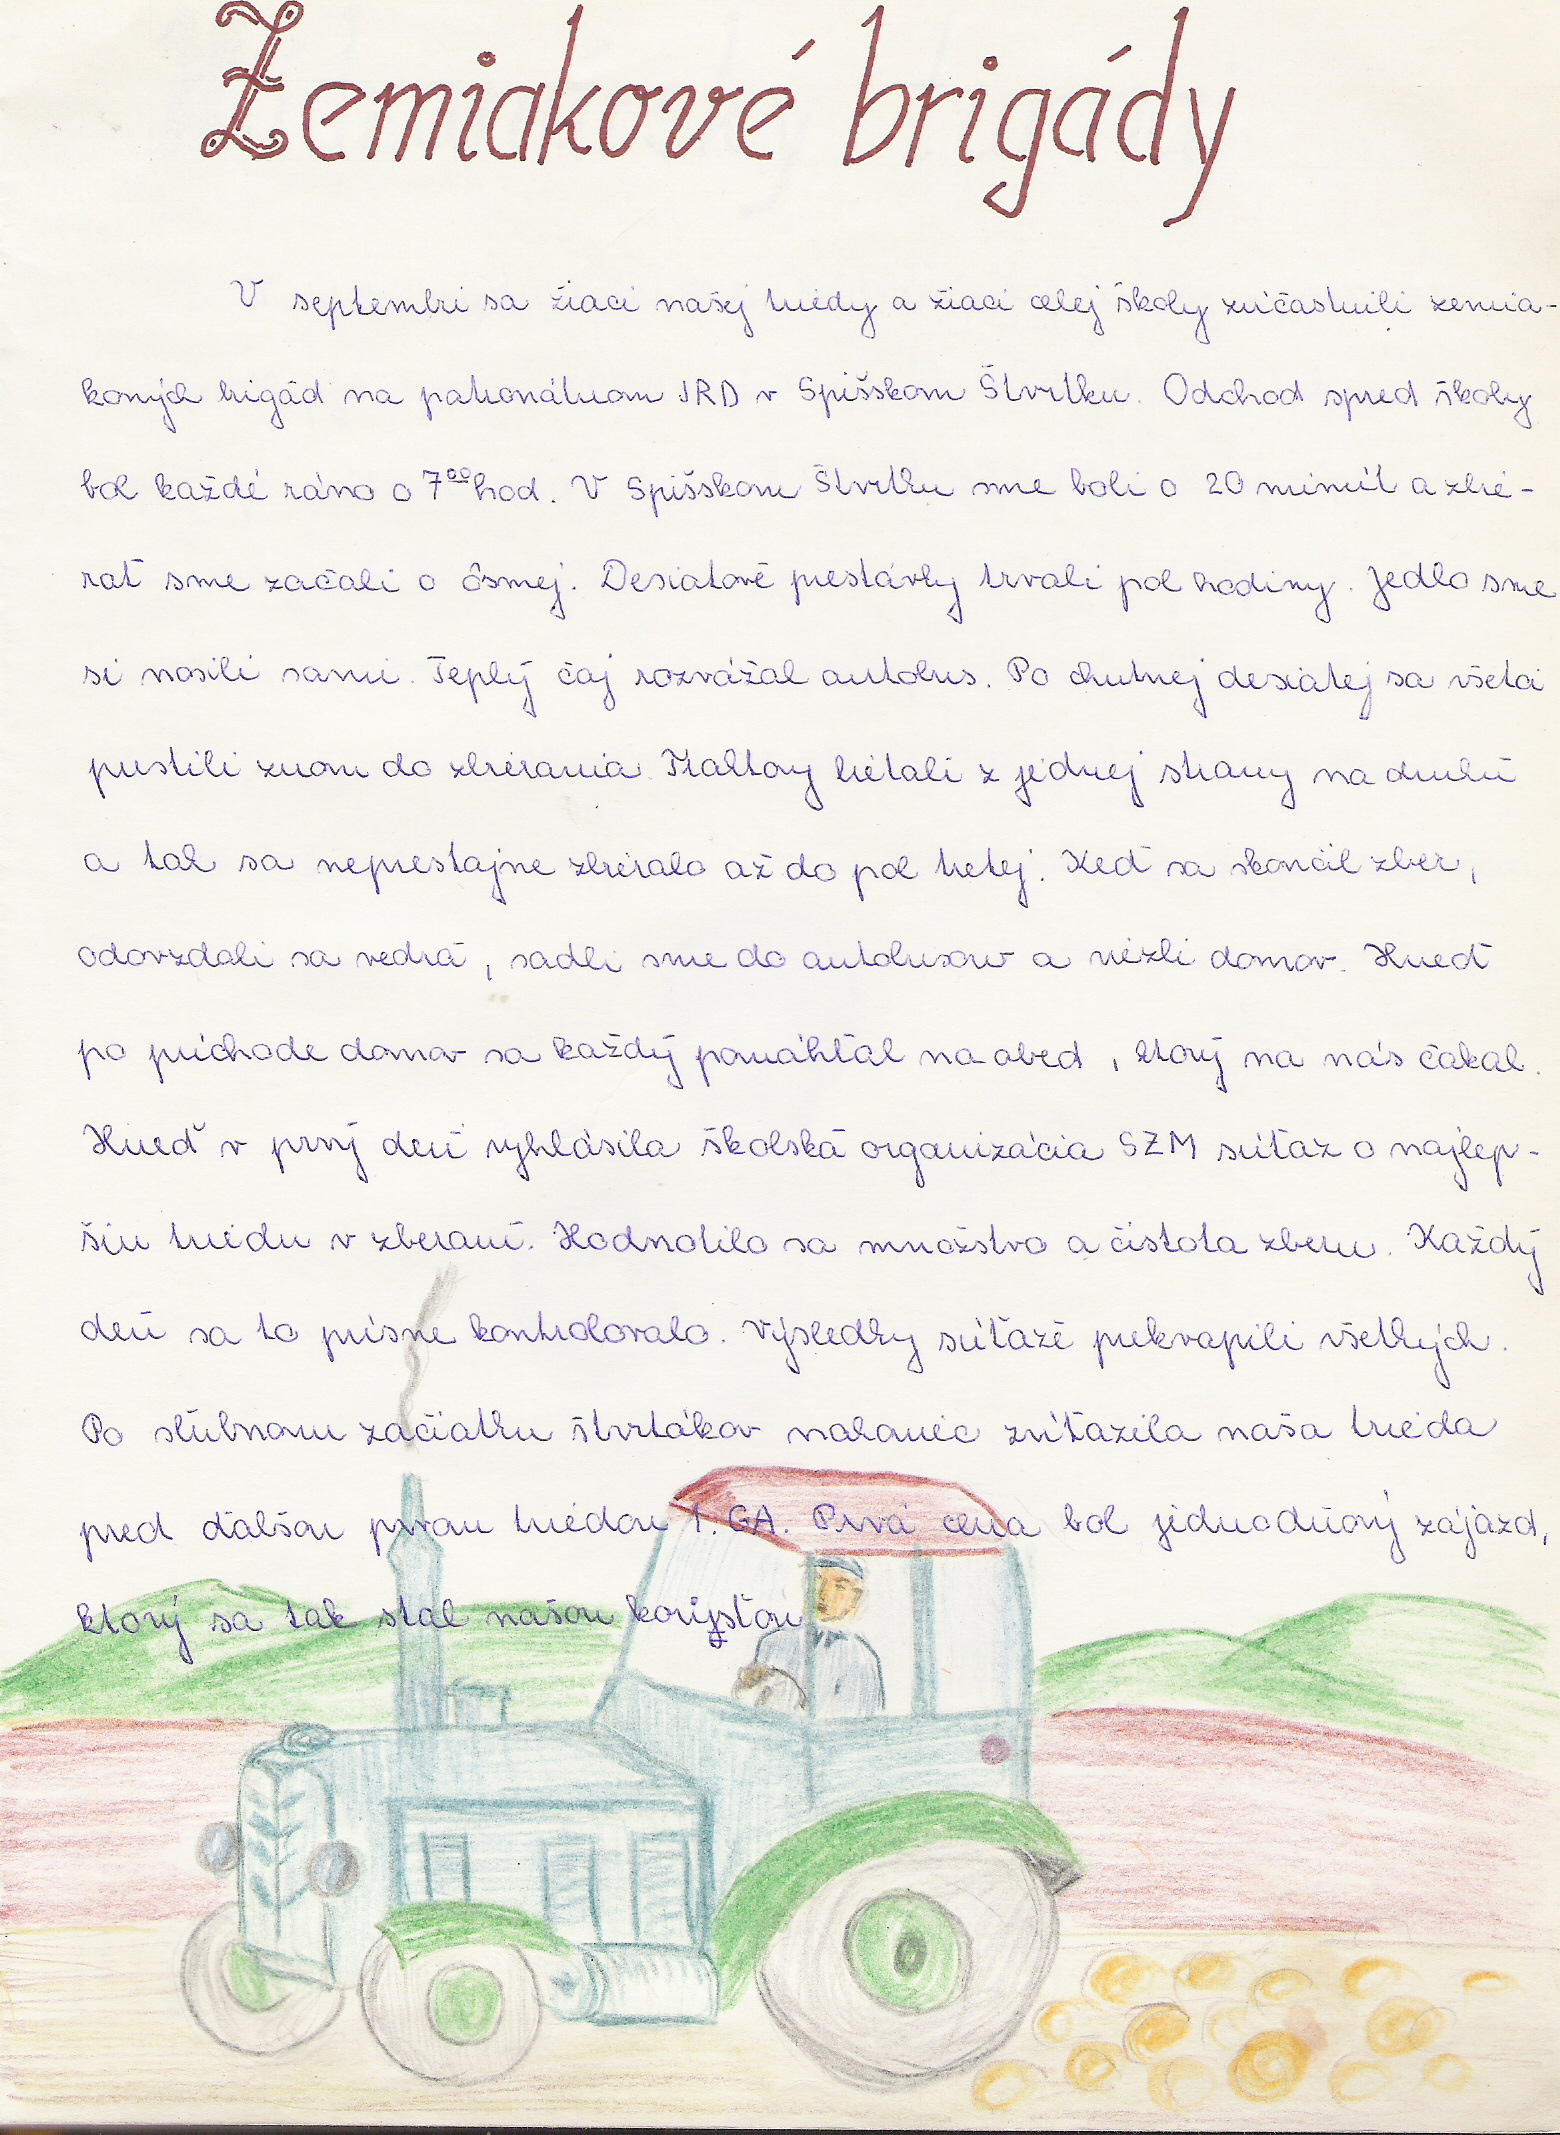 Zemiakové brigády
V septembri sa žiaci našej triedy a žiaci celej školy zúčastnili zemia-
kových brigád na patronátnom JRD v Spišskom Štvrtku. Odchod spred školy
bol každé ráno o 7⁰⁰ hod. V Spišskom Štvrtku sme boli o 20 minút a zbie-
rať sme začali o ôsmej. Desiatové prestávky trvali pol hodiny. Jedlo sme
si nosili sami. Teplý čaj rozvážal autobus. Po chutnej desiatej sa všetci
pustili znom do zbierania. Traktory lietali z jednej strany na druhú
a tak sa neprestajne zbieralo až do pol tretej. Keď sa skončil zber,
odovzdali sa vedrá, sadli sme do autobusov a viezli domov. Hneď
po príchode domov sa každý ponáhľal na obed, ktorý na nás čakal.
Hneď v prvý deň vyhlásila školská organizácia SZM súťaž o najlep-
šiu triedu v zberaní. Hodnotilo sa množstvo a čistota zberu. Každý
deň sa to prísne kontrolovalo. Výsledky súťaže prekvapili všetkých.
Po sľubnom začiatku štvrtákov nakoniec zvíťazila naša trieda
pred ďalšou prvou triedou 1. GA. Prvá cena bol jednodňový zájazd,
ktorý sa tak stal našou korisťou